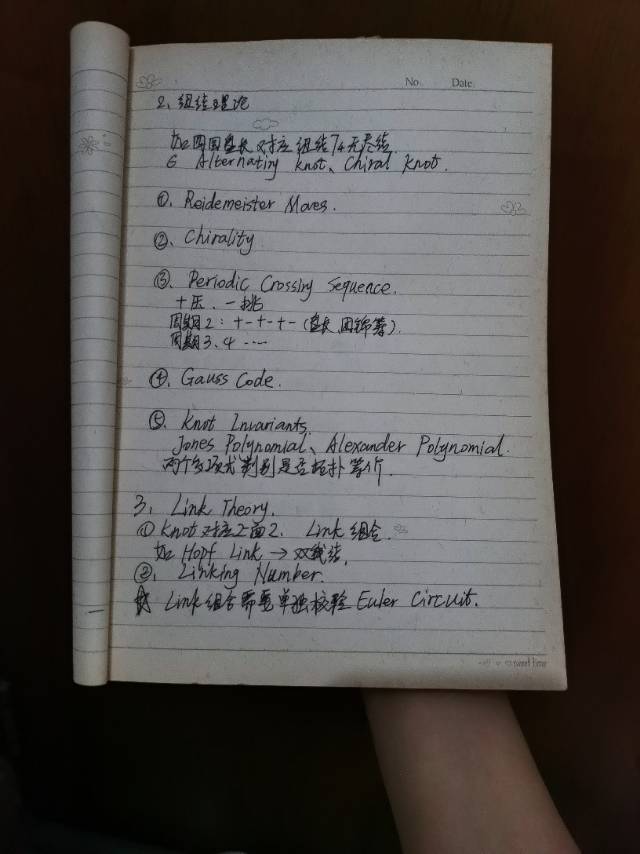 No. Date.
2、纽结理论
如四回盘长对应纽结74无尽结.
Alternating knot、Chiral knot.
①. Reidemeister Moves.
②. Chirality
③. Periodic Crossing Sequence.
+压. 一挑
周期2: +-+-+- (盘长、团锦等).
周期3、4 ……
④. Gauss Code.
⑤. Knot Invariants.
Jones Polynomial、Alexander Polynomial.
两个多项式判别是否拓扑等价.
3, Link Theory.
① Knot对应上面2. Link 组合.
如 Hopf Link → 双钱结.
②. Linking Number.
Link组合需要单独校验 Euler Circuit.
sweet time